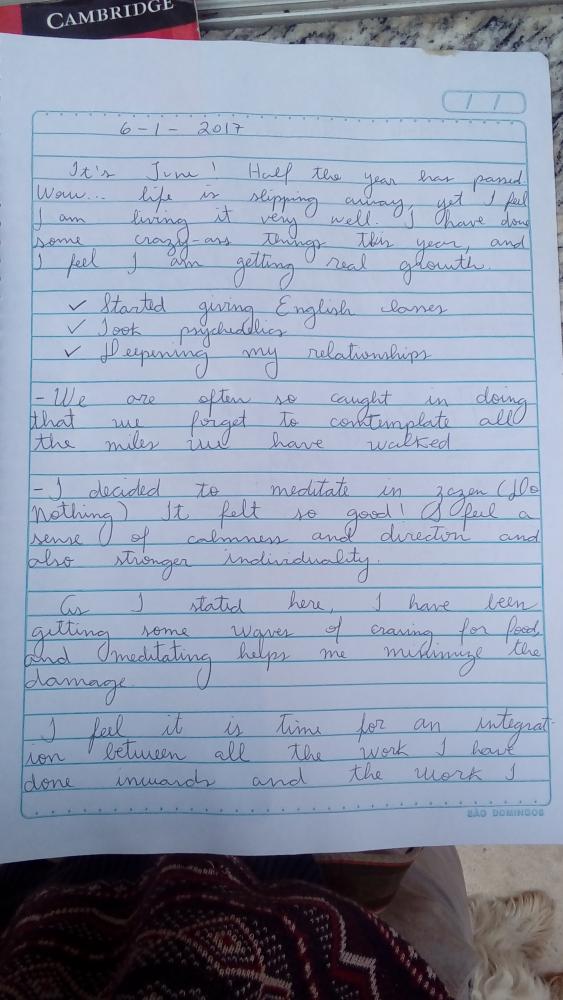 CAMBRIDGE
/ /
6-1- 2017
It's June! Half the year has passed.
Wow... life is slipping away, yet I feel
I am living it very well. I have done
some crazy-ass things this year, and
I feel I am getting real growth.
✓ Started giving English classes
✓ Took psychedelics
✓ Deepening my relationships
- We are often so caught in doing
that we forget to contemplate all
the miles we have walked
- I decided to meditate in zazen (Do
Nothing) It felt so good! I feel a
sense of calmness and direction and
also stronger individuality.
As I stated here, I have been
getting some waves of craving for food,
and meditating helps me minimize the
damage.
I feel it is time for an integrat-
ion between all the work I have
done inwards and the work I
SÃO DOMINGOS